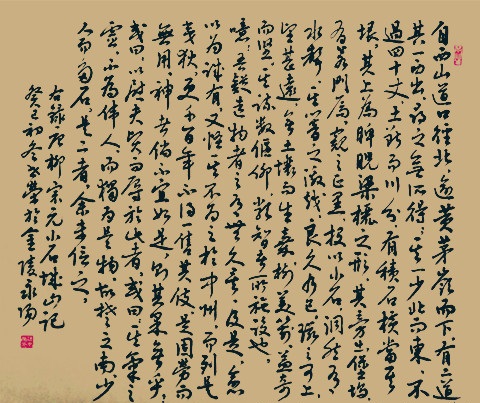 自西山道口徑北逾黄茅嶺而下有二道
其一西出尋之無所得其一少北而東不
過四十丈土斷而川分有積石橫當其
垠其上為睥睨梁欐之形其旁出堡塢
有若門焉窺之正黑投以小石洞然有
水聲其響之激越良久乃已環之可上
望甚遠無土壤而生嘉樹美箭益奇
而堅其疏數偃仰類智者所施設也
噫吾疑造物者之有無久矣及是愈
以為誠有又怪其不為之於中州而列是
夷狄更千百年不得一售其伎是固勞而
無用神者倘不宜如是則其果無乎
或曰以慰夫賢而辱於此者或曰其氣之
靈不為偉人而獨為是物故楚之南少
人而多石是二者余未信之
右錄唐柳宗元小石城山記
癸巳初冬榮於金陵永陽